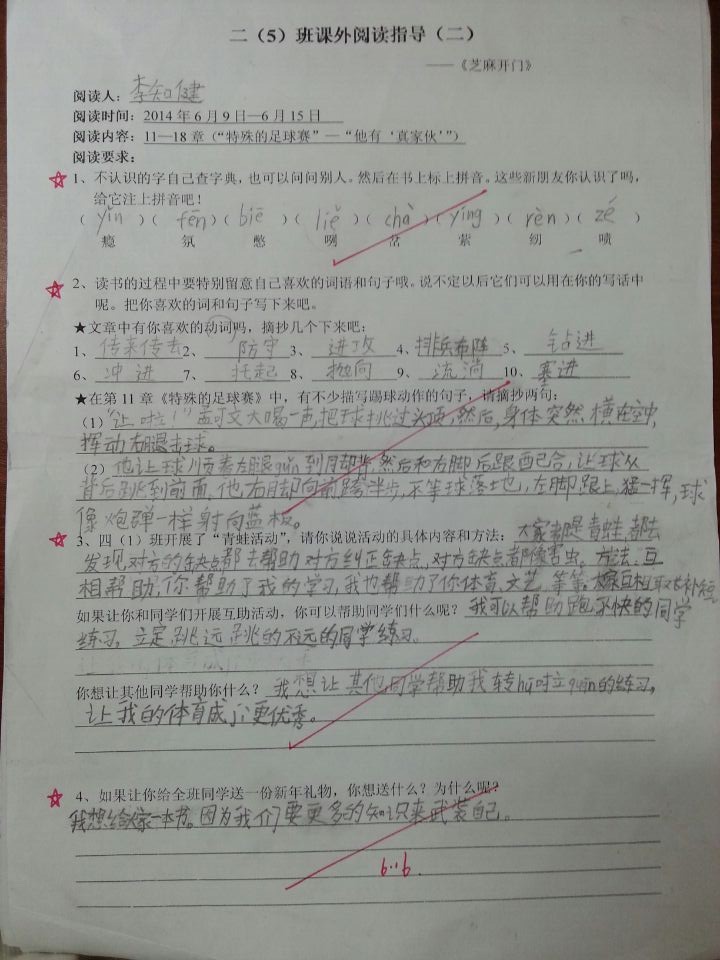 二（5）班课外阅读指导（二）
——《芝麻开门》
阅读人：李知健
阅读时间：2014年6月9日—6月15日
阅读内容：11—18章（“特殊的足球赛”—“他有‘真家伙’”）
阅读要求：
1、不认识的字自己查字典，也可以问问别人。然后在书上标上拼音。这些新朋友你认识了吗，
给它注上拼音吧！
（yǐn）（fēn）（biē）（liě）（chà）（yíng）（rèn）（zé）
瘾 氛 憋 咧 岔 萦 纫 啧
2、读书的过程中要特别留意自己喜欢的词语和句子哦。说不定以后它们可以用在你的写话中
呢。把你喜欢的词和句子写下来吧。
★文章中有你喜欢的动词吗，摘抄几个下来吧：
1、传来传去 2、防守 3、进攻 4、排兵布阵 5、钻进
6、冲进 7、托起 8、抛向 9、流淌 10、塞进
★在第11章《特殊的足球赛》中，有不少描写踢球动作的句子，请摘抄两句：
（1）“让啦！”孟可文大喝一声，把球挑过头顶，然后，身体突然横在空中，
挥动右腿击球。
（2）他让球顺着左腿gǔn到后背，然后和右脚后跟配合，让球从
背后跳到前面，他右脚向前跨半步，不等球落地，左脚跟上，猛一挥，球
像炮弹一样射向蓝板。
3、四（1）班开展了“青蛙活动”，请你说说活动的具体内容和方法：大家都是青蛙，都去
发现对方的缺点都去帮助对方纠正缺点，对方缺点都像害虫。方法：互
相帮助，你帮助了我的学习，我也帮助了你体育、文艺，等等。大家互相取长补短。
如果让你和同学们开展互助活动，你可以帮助同学们什么呢？我可以帮助跑不快的同学
练习，立定跳远跳的不远的同学练习。
你想让其他同学帮助你什么？我想让其他同学帮助我转hū时立quān的练习，
让我的体育成jì更优秀。
4、如果让你给全班同学送一份新年礼物，你想送什么？为什么呢？
我想给大家一本书。因为我们要更多的知识来武装自己。
6·16.